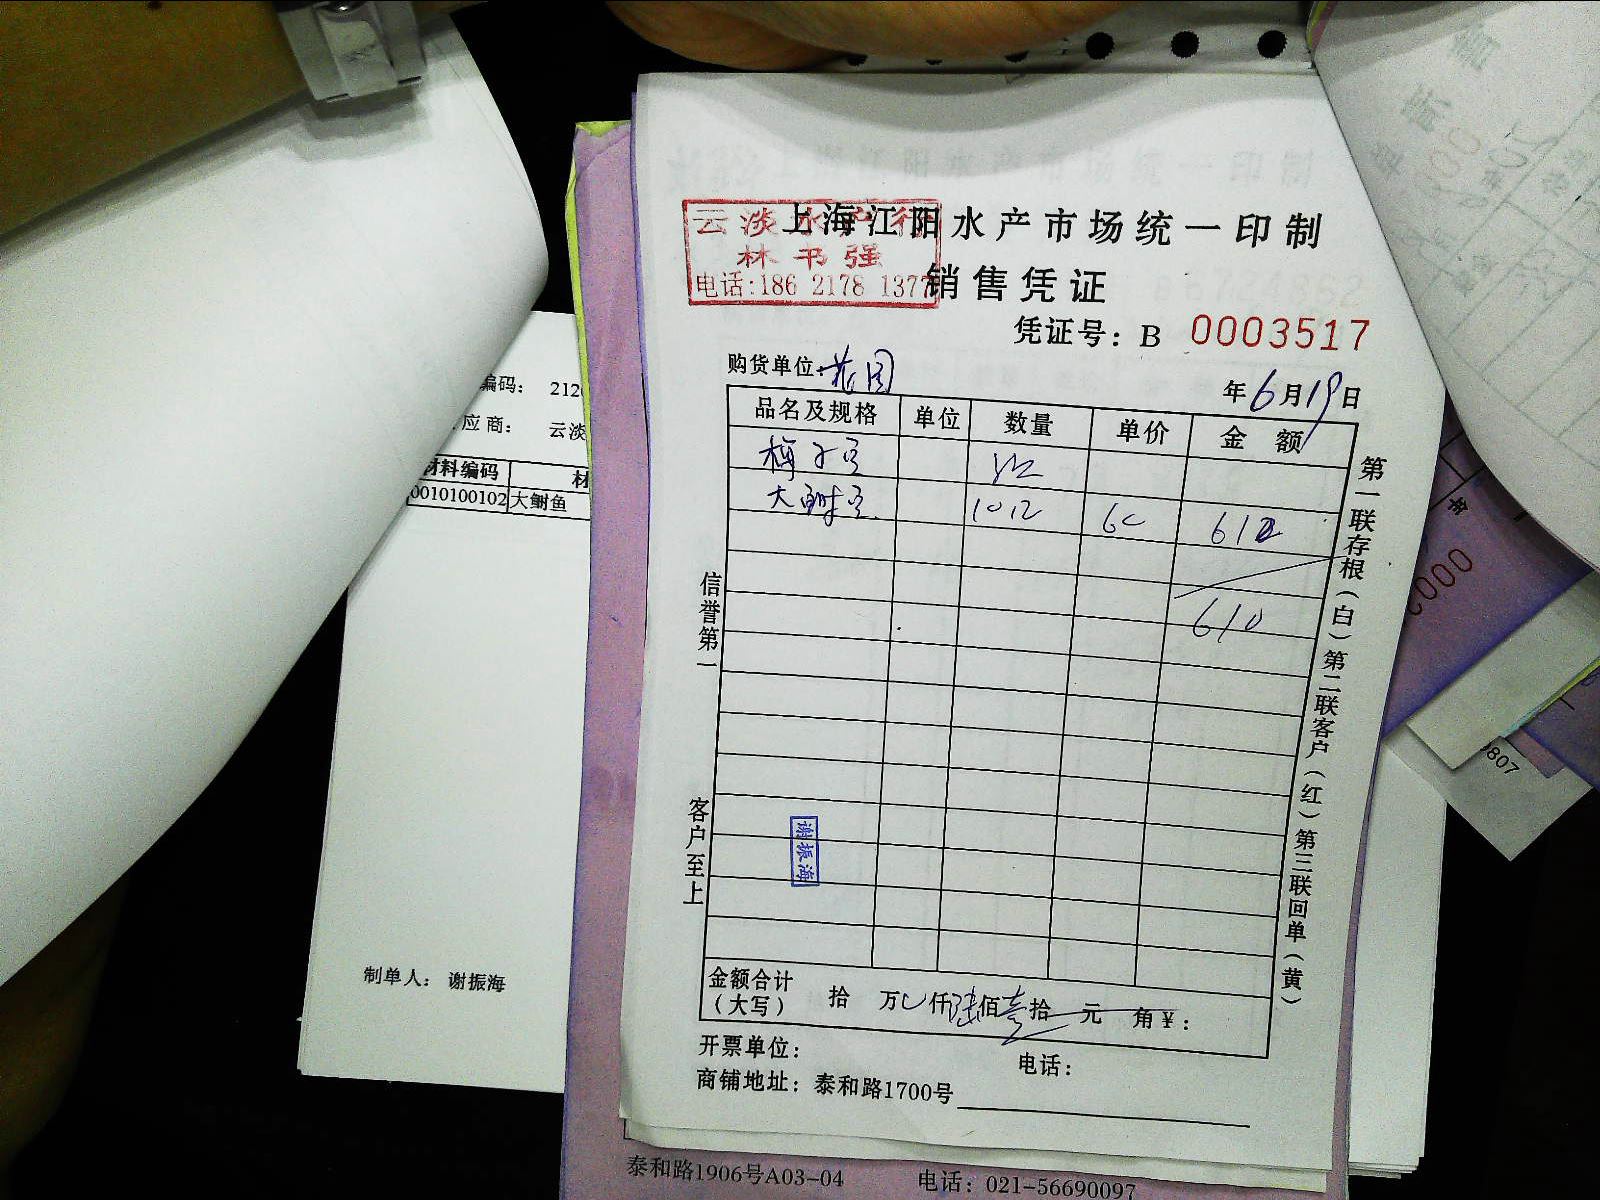 上海江阳水产市场统一印制
云淡水产行
林书强
电话:186 2178 1377
销售凭证
凭证号：B 0003517
购货单位：
年6月19日
品名及规格 单位 数量 单价 金额
梅子鱼
大鲥鱼
612
610
信誉第一
客户至上
第一联存根（白）第二联客户（红）第三联回单（黄）
谢振海
金额合计（大写） 拾 万 仟陆佰壹拾 元 角￥：
开票单位： 电话：
商铺地址：泰和路1700号
泰和路1906号A03-04 电话：021-56690097
编码： 212
应商： 云淡
材料编码 材
0010100102 大鲥鱼
制单人： 谢振海
0807